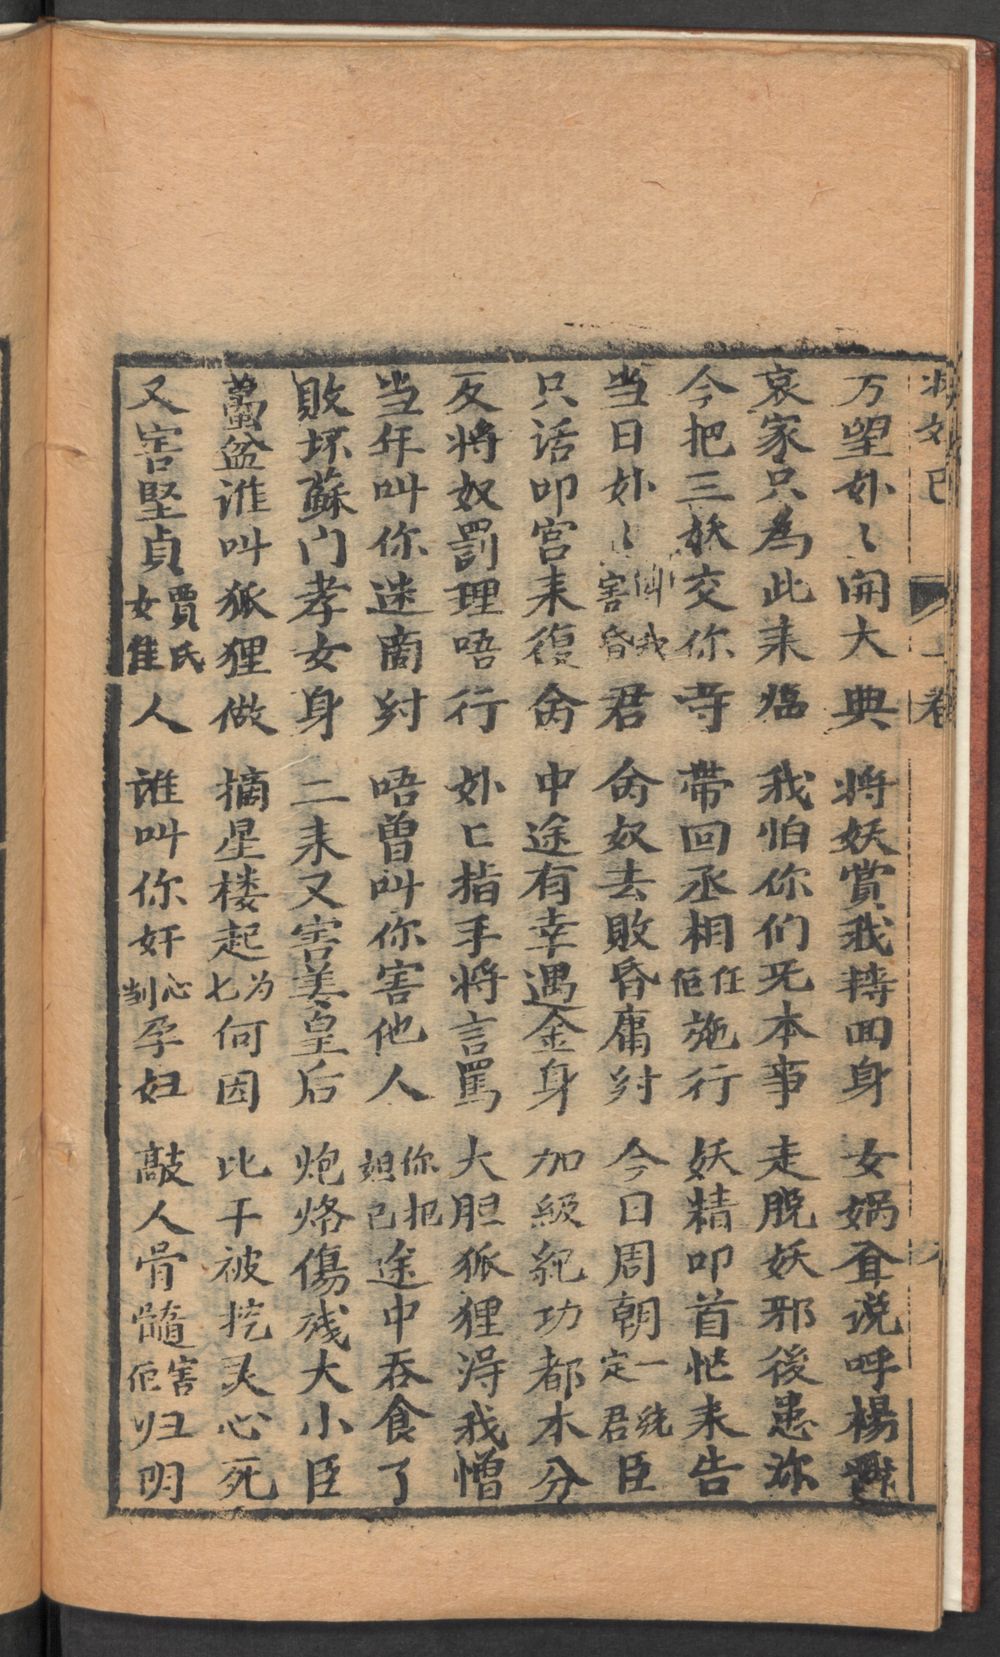 妲己 上卷
万望外〻開大典 将妖賞我轉回身 女媧耷说呼楊戩
哀家只為此来臨 我怕你们旡本事 走脫妖邪後患深
今把三妖交你寺 带回丞相任佢施行 妖精叩首忙来告
当日外〻叫我害昏君 命奴去敗昏庸紂 今日周朝一統定君臣
只话叩宫来復命 中途有幸遇金身 加級紀功都本分
反将奴罰理唔行 外匕指手将言罵 大胆狐狸淂我憎
当年叫你迷商紂 唔曽叫你害他人 你把妲己途中吞食了
敗坏蘇门孝女身 二来又害姜皇后 炮烙傷残大小臣
蠆盆谁叫狐狸做 摘星楼起为乜何因 比干被挖灵心死
又害堅貞賈氏女佳人 谁叫你奸心剖孕妇 敲人骨髓害佢归阴